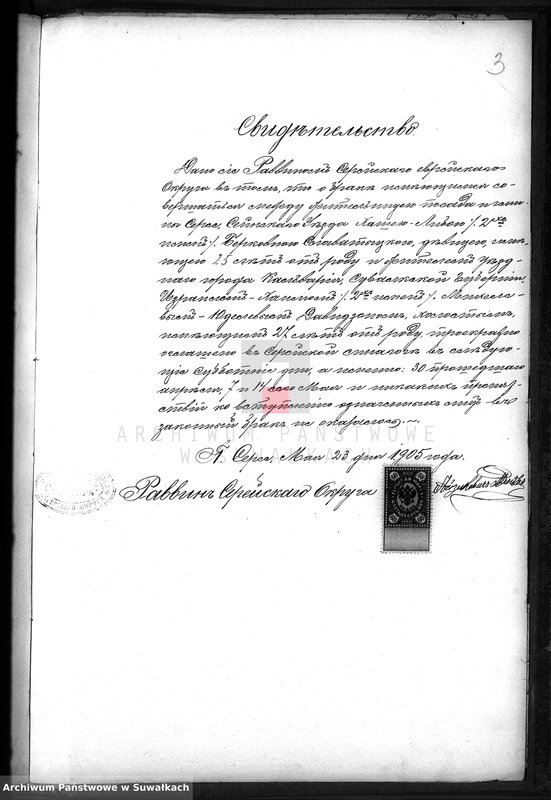 3
Свидѣтельство.
Дано сіе Раввиномъ Серейскаго еврейскаго
Округа въ томъ, что о бракѣ имѣющемъ со-
вершиться между жительницею посада и гми-
ны Серее, Сейнскаго Уѣзда Хашею-Либою /2хъ
именъ/ Берковною дѣвицею, имѣ-
ющею 25 лѣтъ отъ роду и жителемъ уѣзд-
наго города Кальваріи, Сувалкской Губерніи,
Израилемъ-Хаимомъ /2хъ именъ/
Юделевымъ Давидзономъ, холостымъ,
имѣющимъ 27 лѣтъ отъ роду, троекратно
оглашено въ Серейской синагогѣ въ слѣдую-
щіе Субботніе дни, а именно: 30 прошедшаго
апрѣля, 7 и 14 сего Мая и никакихъ препят-
ствій ко вступленію означенныхъ лицъ въ
законный бракъ не оказалось.
ARCHIWUM PAŃSTWOWE
П. Серее, Мая 23 дня 1905 года.
Раввинъ Серейскаго Округа
Archiwum Państwowe w Suwałkach